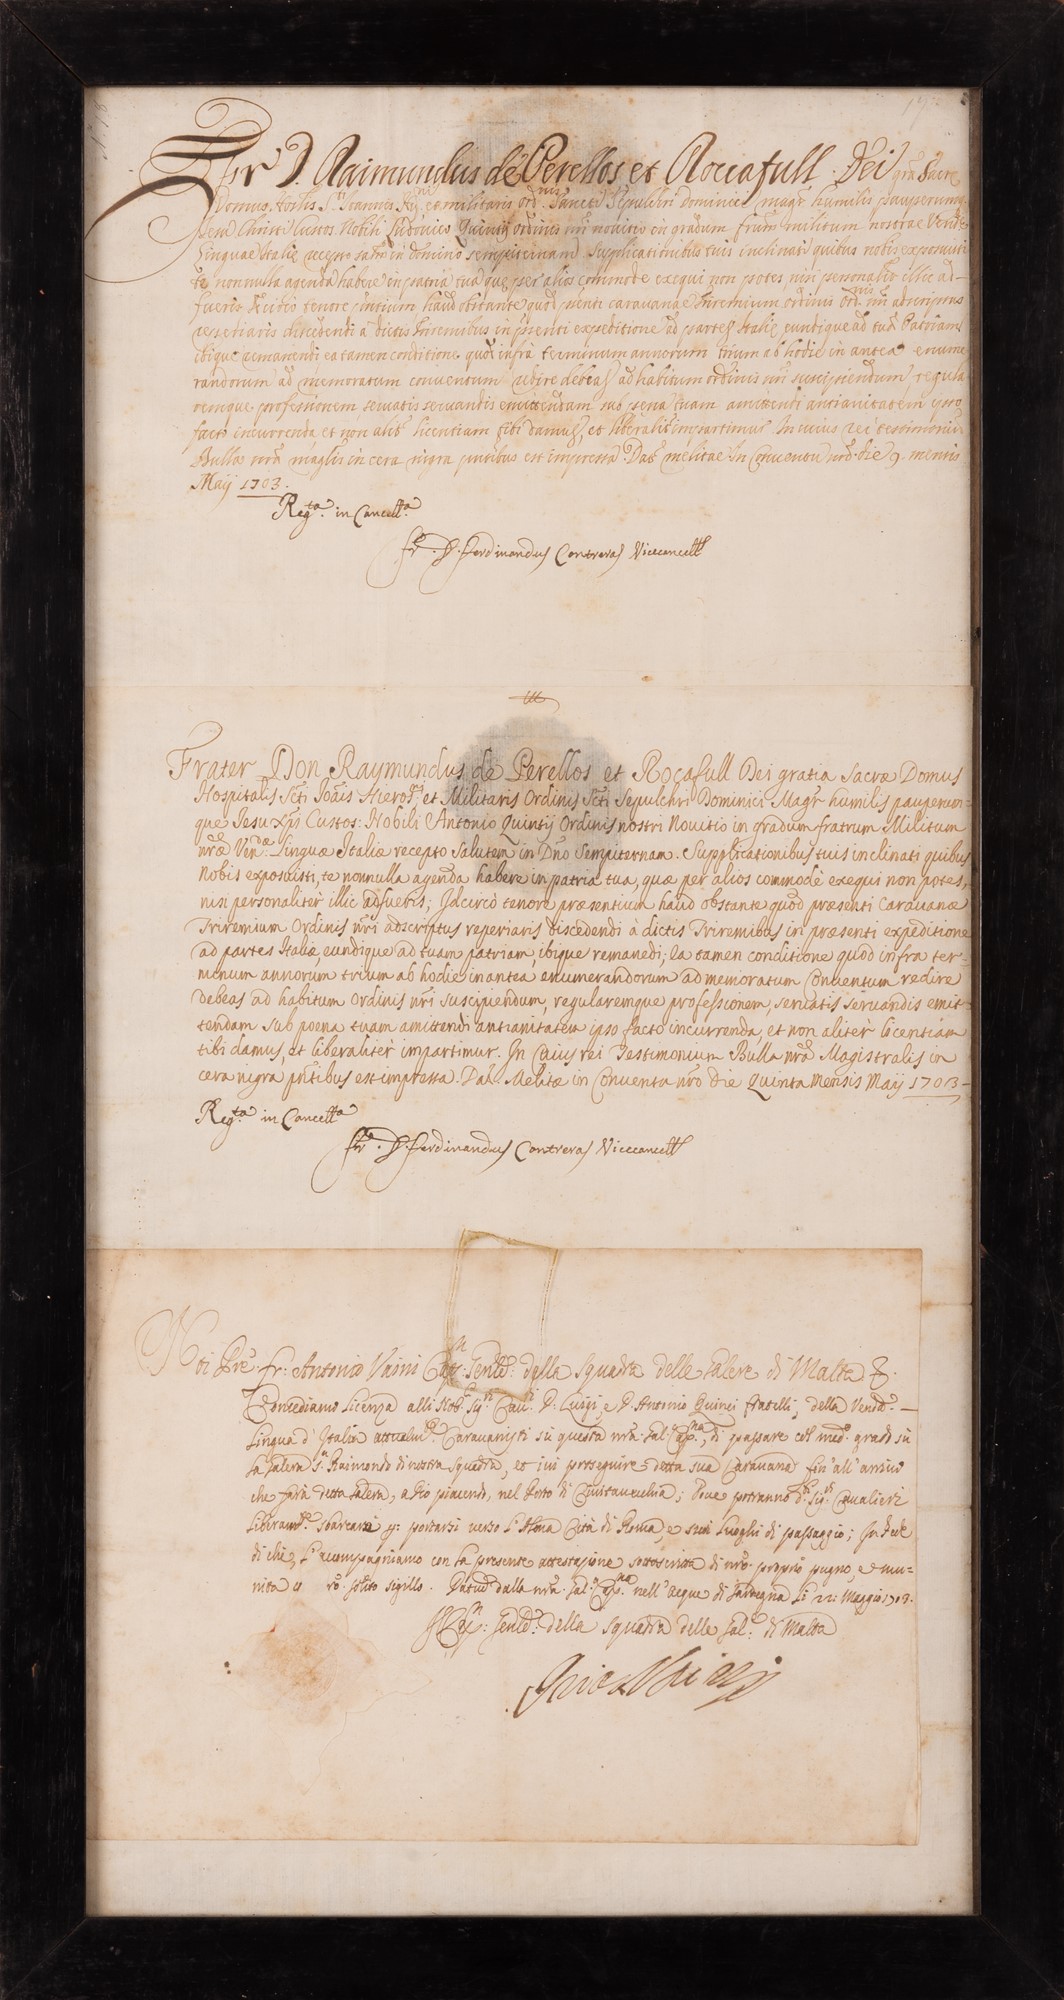 Fr. D. Raimundus de Perellos et Roccafull Dei gra Sacre
Domus Hosplis Sti Joannis et militaris ord. Sancti Sepulchri Dominici magr humilis pauperumq
Jesu Christi Custos Nobili Ludovico Quintij ordinis nri novitio in gradum frum militum nostrae Vende
Linguae Italie recepto satm in domino sempiternam. Supplicationibus tuis inclinati quibus nobis exposuisti
te nonnulla agenda habere in patria tua que per alios commode exequi non potes, nisi personalir illic ad-
fueris Idcirco tenore pntium haud obstante quod pnti caravanae triremium ordinis nri adscriptus
reperiaris discedendi a dictis triremibus in psenti expeditione ad partes Italie eundique ad tua Patriam
ibique remanendi ea tamen conditione quod infra terminum annorum trium ab hodie in antea enume
randorum ad memoratum conventum redire debeas ad habitum ordinis nri suscipiendum regula
remque professionem servatis servandis emittendam sub pena tuam amittendi antianitatem ipso
facto incurrenda et non alir licentiam tibi damus, et liberalir impartimur In cuius rei testimonium
Bulla nra maglis in cera nigra pntibus est impressa Dat melitae In Conventu nro die 9 mensis
Maij 1703.
Regta in Cancellta
Fr. D. Ferdinandus Contreras Vicecancells
Frater Don Raymundus de Perellos et Rocafull Dei gratia Sacrae Domus
Hospitalis Scti Joais Hieros, et Militaris Ordinis Scti Sepulchri Dominici Magr humilis pauperum-
que Jesu Xpi Custos: Nobili Antonio Quintij Ordinis nostri Novitio in gradum fratrum Militum
nrae Vendae Linguae Italiae recepto Salutem in Dno Sempiternam. Supplicationibus tuis inclinati quibus
Nobis exposuisti, te nonnulla agenda habere in patria tua, quae per alios commodè exequi non potes,
nisi personalitèr illic adfueris; Idcircò tenore praesentium haud obstante quod praesenti Caravanae
Triremium Ordinis nri adscriptus reperiaris discedendi à dictis Triremibus in praesenti expeditione
ad partes Italiae, eundique ad tuam patriam, ibique remanendi; Ea tamen conditione quod infra ter-
minum annorum trium ab hodie in antea enumerandorum ad memoratum Conventum redire
debeas ad habitum Ordinis nri suscipiendum, regularemque professionem, servatis servandis emit-
tendam sub poena tuam amittendi antianitatem ipso facto incurrenda, et non alitèr licentiam
tibi damus, et liberalitèr impartimur. In Cuius rei Testimonium Bulla nra Magistralis in
cera nigra pntibus est impressa. Dat. Melitae in Conventu nro Die Quinta Mensis Maij 1703-
Regta in Cancellta
Fr. D. Ferdinandus Contreras Vicecancells
Noi Pre fr: Antonio Capn Genle: della Squadra delle Galere di Malta &.
Concediamo Licenza alli Nobi Sigri Cavi D. Luigi, e D. Antonio Quinzi fratelli, della Venda.
Lingua d'Italia attualmte Caravanisti sù questa nra Gal. Capna, di passare col medo. grado sù
la Galera Sn Raimondo di nostra Squadra, et ivi proseguire detta sua Caravana fin'all'arrivo
che farà detta Galera, a Dio piacendo, nel Porto di Civitavecchia; dove potranno di Sigri Cavalieri
liberamte sbarcarsi pr portarsi verso l'Alma Città di Roma, e suoi luoghi di passaggio; In fede
di che, l'accompagniamo con la presente attestazione sottoscritta di nro proprio pugno, e mu-
nita solito sigillo. Data dalla nra Gal. Capna nell'acque di Sardegna Li 22: Maggio 1703.
Il Capn: Genle: della Squadra delle Gal. di Malta